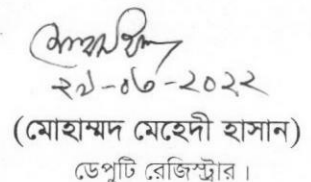 ২৯-০৬-২০২২
(মোহাম্মদ মেহেদী হাসান)
ডেপুটি রেজিস্ট্রার।